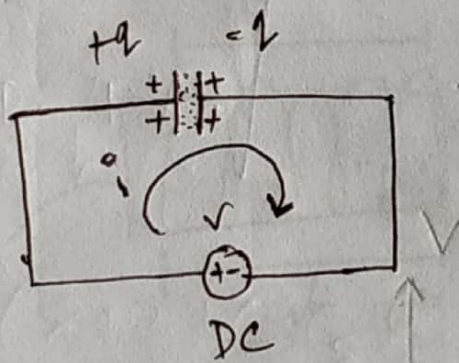 +q -q
+ +
+ +
i
V
+-
DC